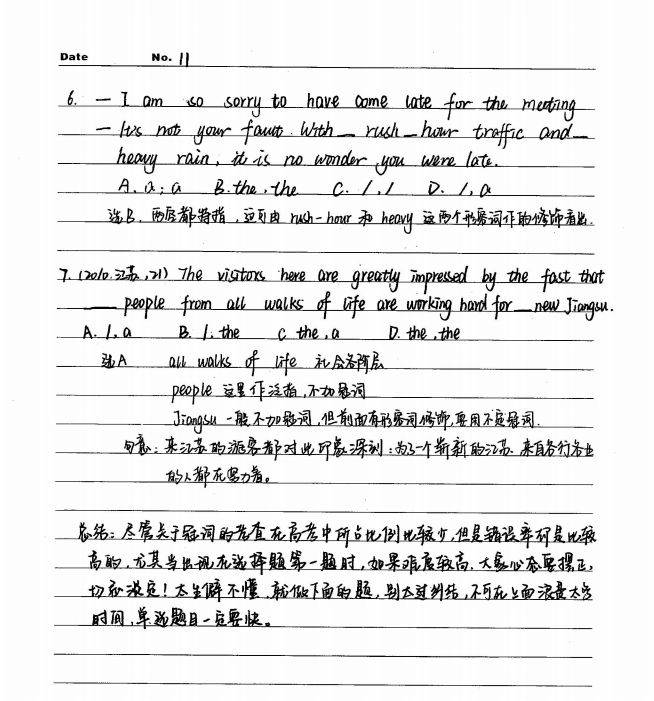 Date No. 11
6. — I am so sorry to have come late for the meeting
— It's not your fault. With _ rush _ hour traffic and _
heavy rain, it is no wonder you were late.
A. a; a B. the, the C. /, / D. /, a
选B. 两层都特指, 这可由 rush-hour 和 heavy 这两个形容词作的修饰看出.
7. (2010.江苏, 21) The visitors here are greatly impressed by the fast that
___ people from all walks of life are working hard for _ new Jiangsu.
A. /, a B. /, the C the, a D. the, the
选A all walks of life 社会各阶层
people 这里作泛指, 不加冠词
Jiangsu 一般不加冠词, 但前面有形容词修饰, 要用不定冠词.
句意: 来江苏的游客都对此印象深刻: 为了一个崭新的江苏, 来自各行各业
的人都在努力着。
总结: 尽管关于冠词的考查在高考中所占比例比较少, 但是错误率却是比较
高的, 尤其当出现在选择题第一题时, 如果难度较高, 大家心态要摆正,
切忌淡定! 太生僻不懂, 就做下面的题, 别太过纠结, 不可在上面浪费太多
时间, 单选题目一定要快。